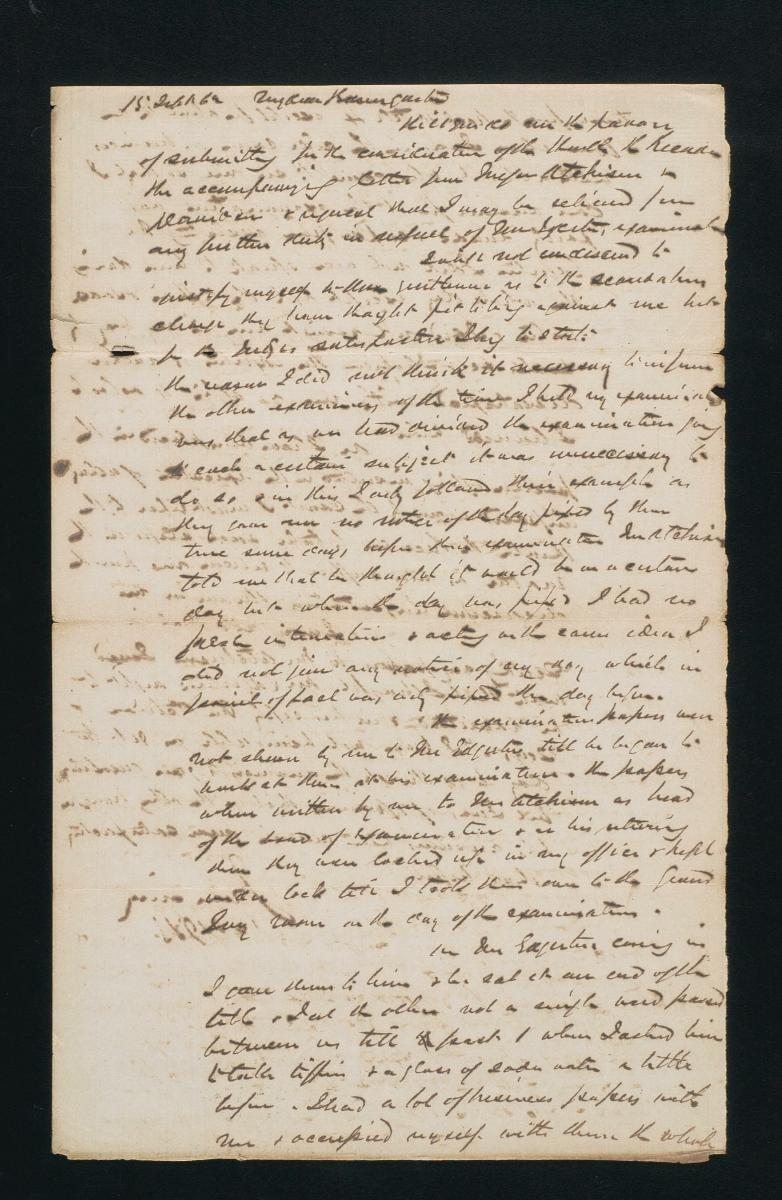 15 Sept 62 My dear Baumgarten
Will you do me the favour
of submitting for the consideration of the Honble the Recorder
the accompanying letter from Messrs Atchison &
Daniel & request that I may be relieved from
any further duty in respect of Mr Edgertons examination
I will not condescend to
justify myself to these gentlemen as to the
charge they have thought fit to bring against me but
for the Judges satisfaction I beg to state
the reason I did not think it necessary to inform
the other examiners of the time I held my examination
was that as we had divided the examination giving
to each a certain subject it was unnecessary to
do so & in this I only followed their example as
they gave me no notice of the day fixed by them
true some days before their examination Mr Atchison
told me that he thought it would be on a certain
day but when the day was fixed I had no
fresh intimation & acting on the same idea I
did not give any notice of my day which in
point of fact was only fixed the day before.
The examination papers were
not shown by me to Mr Edgerton till he began to
work at them at his examination. The papers
when written by me to Mr Atchison as head
of the board of examination & on his returning
them they were locked up in my office & kept
under lock till I took them over to the Grand
Jury room on the day of the examination.
On Mr Edgerton coming in
I gave them to him & he sat at one end of the
table & I at the other not a single word passed
between us till past 1 when I asked him
to take tiffin & a glass of soda water a little
before. I had a lot of business papers with
me & occupied myself with them the whole